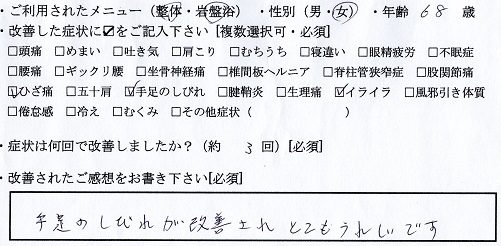 ・ご利用されたメニュー（整体・岩盤浴）・性別（男・女）・年齢 68 歳
・改善した症状に☑をご記入下さい［複数選択可・必須］
□頭痛 □めまい □吐き気 □肩こり □むちうち □寝違い □眼精疲労 □不眠症
□腰痛 □ギックリ腰 □坐骨神経痛 □椎間板ヘルニア □脊柱管狭窄症 □股関節痛
☑ひざ痛 □五十肩 ☑手足のしびれ □腱鞘炎 □生理痛 ☑イライラ □風邪引き体質
□倦怠感 □冷え □むくみ □その他症状（ ）
・症状は何回で改善しましたか？（約 3 回）［必須］
・改善されたご感想をお書き下さい［必須］
手足のしびれが改善され とてもうれしいです